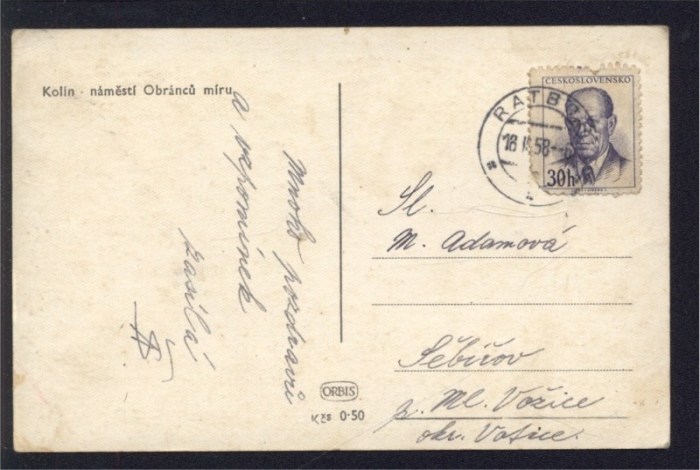 Kolín - náměstí Obránců míru
Mnoho pozdravů
a vzpomínek
zasílá
ČESKOSLOVENSKO
30h
RATBOŘ
18 58
Sl.
M. Adamová
Šebířov
p. Ml. Vožice
okr. Votice.
ORBIS
Kčs 0·50